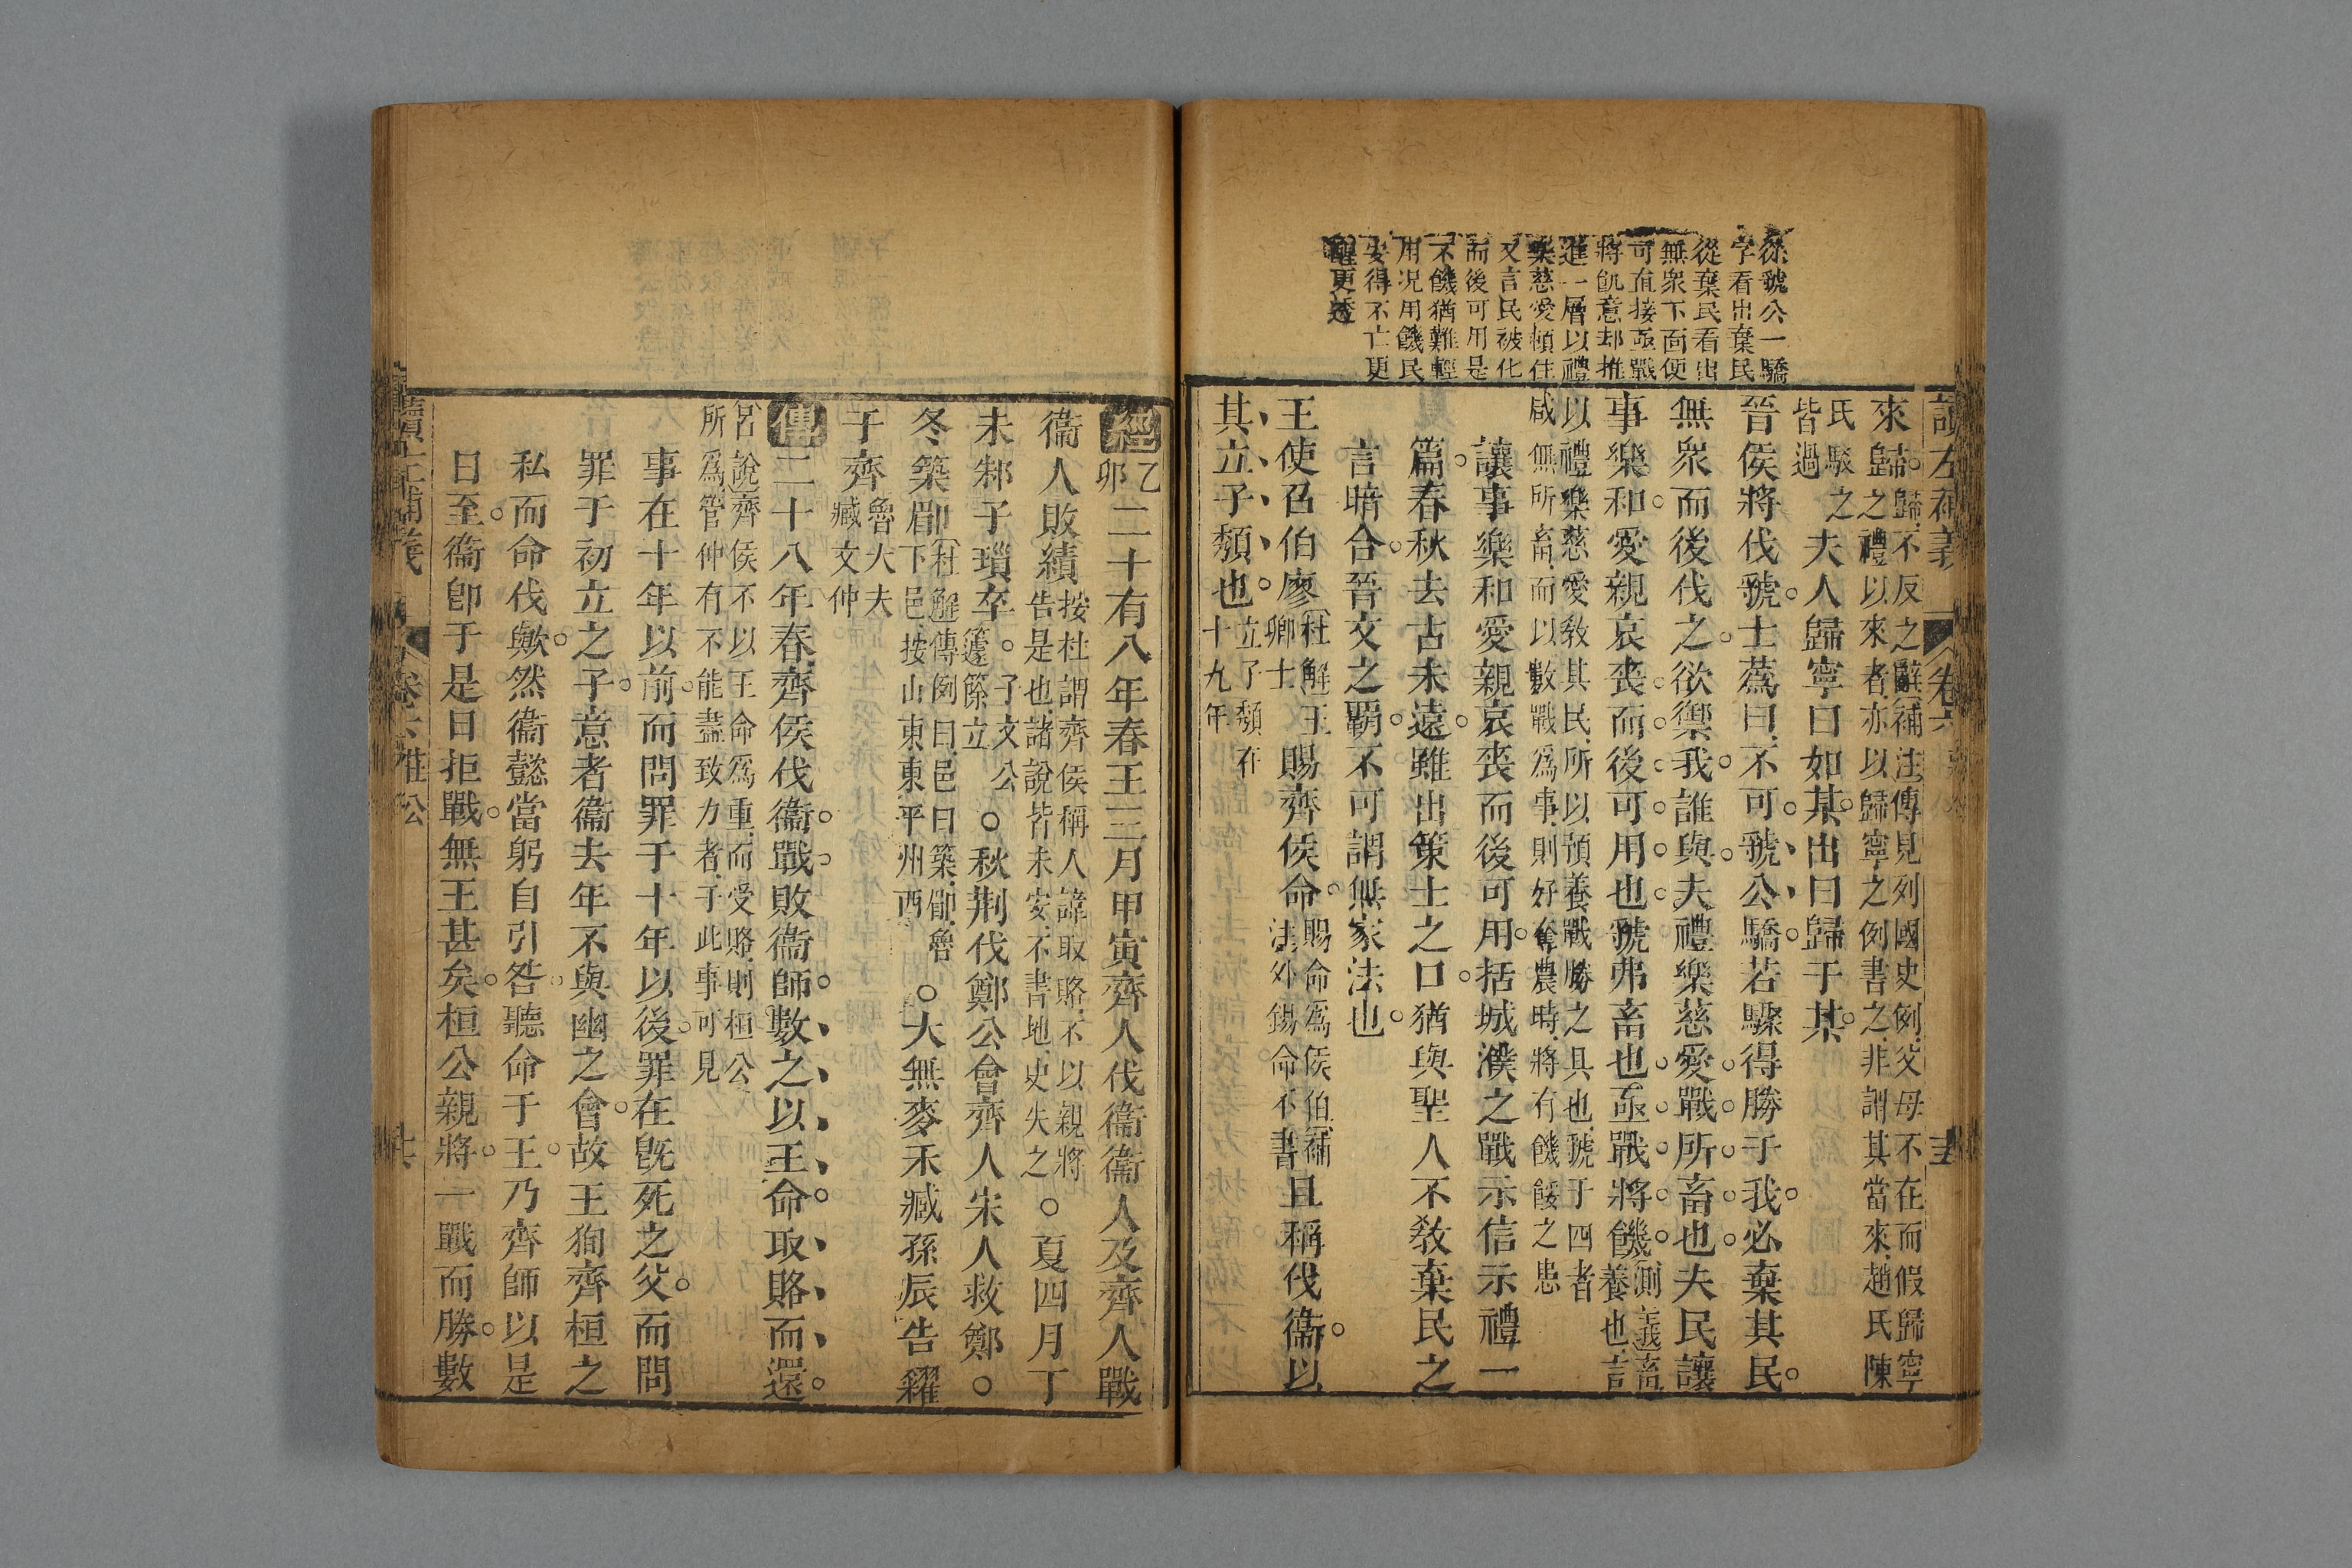 讀左補義 卷六
從虢公一驕
字看出棄民
從棄民看出
無衆下面便
可直接亟戰
將飢意却推
進一層以禮
樂慈愛頓住
又言民被化
而後可用是
不饑猶難輕
用况用饑民
安得不亡更
醒更透
來歸。歸、不反之辭補注傳見列國史例、父母不在而假歸寧
之禮以來者、亦以歸寧之例書之、非謂其當來、趙氏陳
氏駁之
皆過
夫人歸寧曰如某。出曰歸于某。
晉侯將伐虢。士蔿曰、不可。虢公驕。若驟得勝于我。必棄其民。
無衆而後伐之。欲禦我。誰與。夫禮樂慈愛。戰所畜也。夫民讓
事樂和。愛親哀喪。而後可用也。虢弗畜也。亟戰將饑。測義畜
養也、言
以禮樂慈愛敎其民、所以預養戰勝之具也、虢于四者
咸無所畜、而以數戰爲事、則好奪農時、將有饑餒之患
讓事樂和愛親哀喪而後可用。括城濮之戰示信示禮一
篇。春秋去古未遠。雖出策士之口。猶與聖人不敎棄民之
言暗合。晉文之覇。不可謂無家法也。
王使召伯廖杜解王
卿士
賜齊侯命。賜命爲侯伯補
法外錫命不書
且稱伐衞。以
其立子頽也。立子頽在
十九年
經乙
卯
二十有八年春王三月甲寅齊人伐衞衞人及齊人戰
衞人敗績按杜謂齊侯稱人諱取賂、不以親將
告是也、諸說皆未安、不書地、史失之
○夏四月丁
未邾子瑣卒。子文公
籧篨立
○秋荆伐鄭公會齊人宋人救鄭。○
冬築郿杜解傳例曰、邑曰築、郿、魯
下邑、按山東東平州西
○大無麥禾臧孫辰告糴
于齊魯大夫
臧文仲
傳二十八年春、齊侯伐衞。戰。敗衞師。數之、以王命。取賂而還。
呂說齊侯不以王命爲重、而受賂、則桓公
所爲、管仲有不能盡致力者、于此事可見
事在十年以前。而問罪于十年以後。罪在旣死之父。而問
罪于初立之子。意者衞去年不與幽之會。故王狥齊桓之
私而命伐歟。然衞懿當躬自引咎。聽命于王。乃齊師以是
日至。衞卽于是日拒戰。無王甚矣。桓公親將。一戰而勝。數